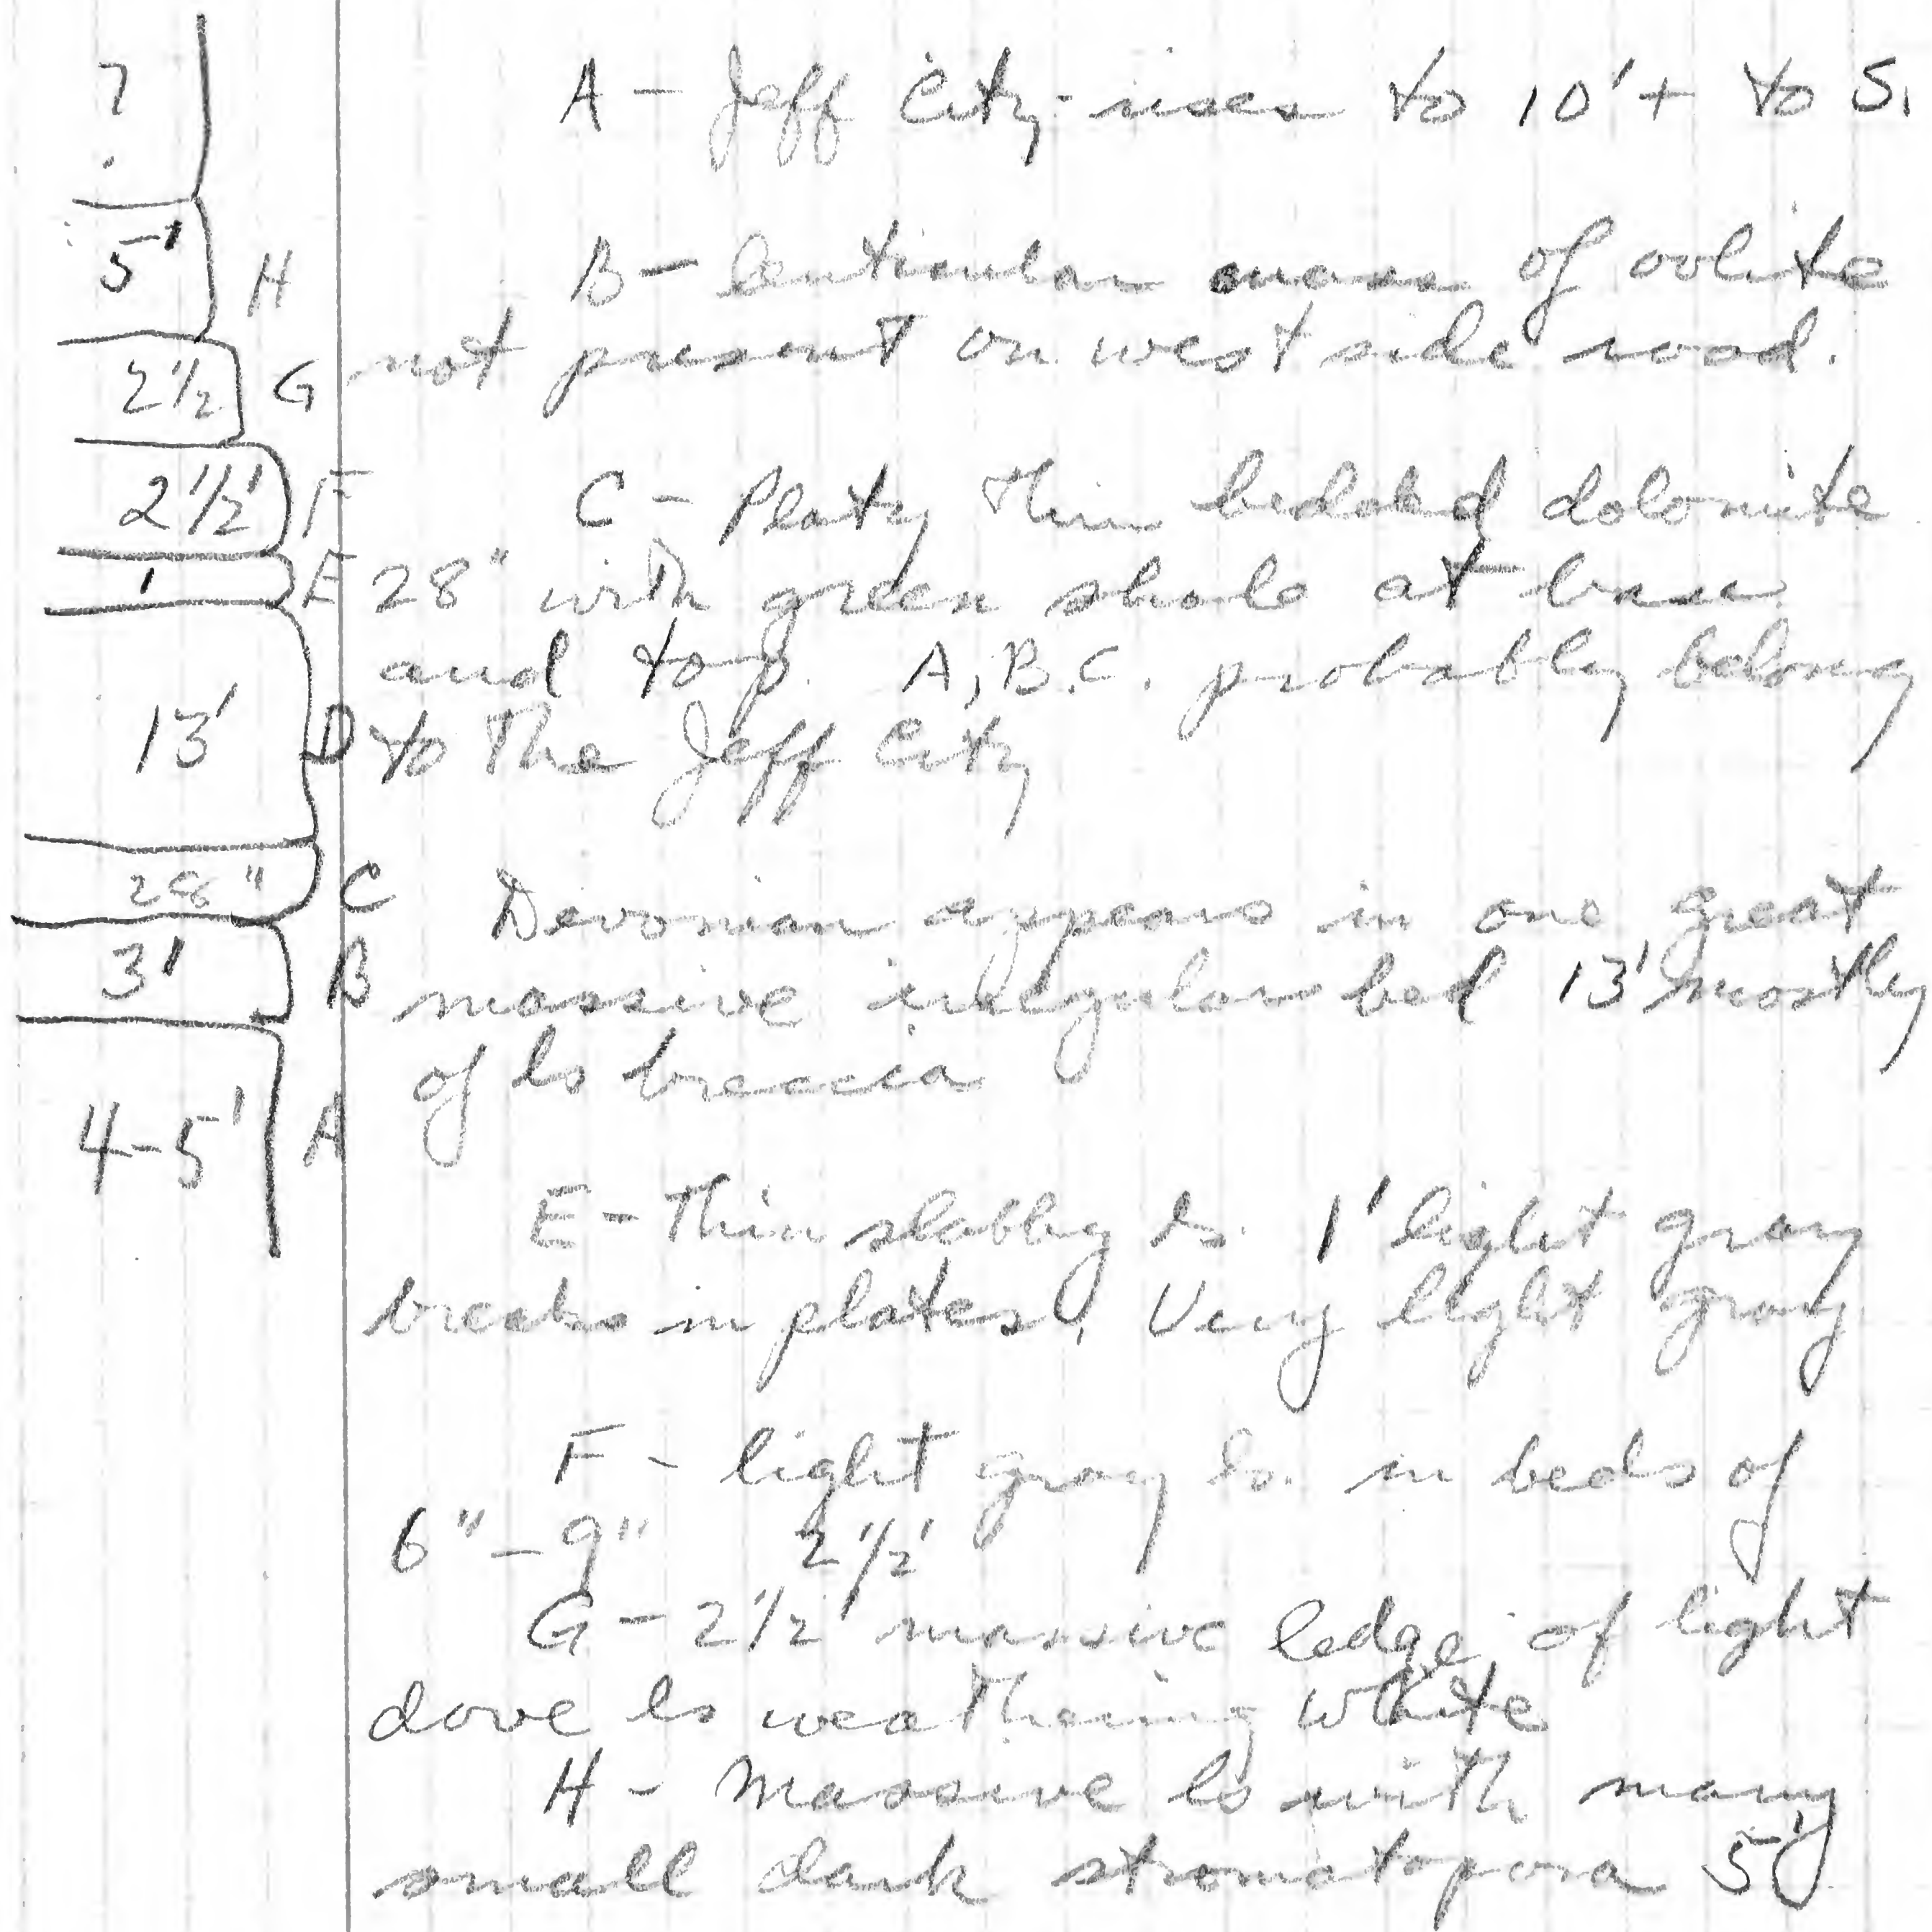 ?
5' H
2 1/2 G
2 1/2' F
1 E
13' D
28" C
3' B
4-5' A
A - Jeff City - rises to 10'+ to S.
B - lenticular mass of oolite
not present on west side road.
C - Platy thin bedded dolomite
28" with green shale at base
and top. A, B. C. probably belong
to the Jeff City
Devonian appears in one great
massive irregular bed 13' mostly
of ls breccia
E - Thin slabby ls. 1' light gray
breaks in plates. Very light gray
F - light gray ls. in beds of
6" - 9" 2 1/2'
G - 2 1/2' massive ledge of light
dove ls weathering white
H - Massive ls with many
small dark stromatopora 5'